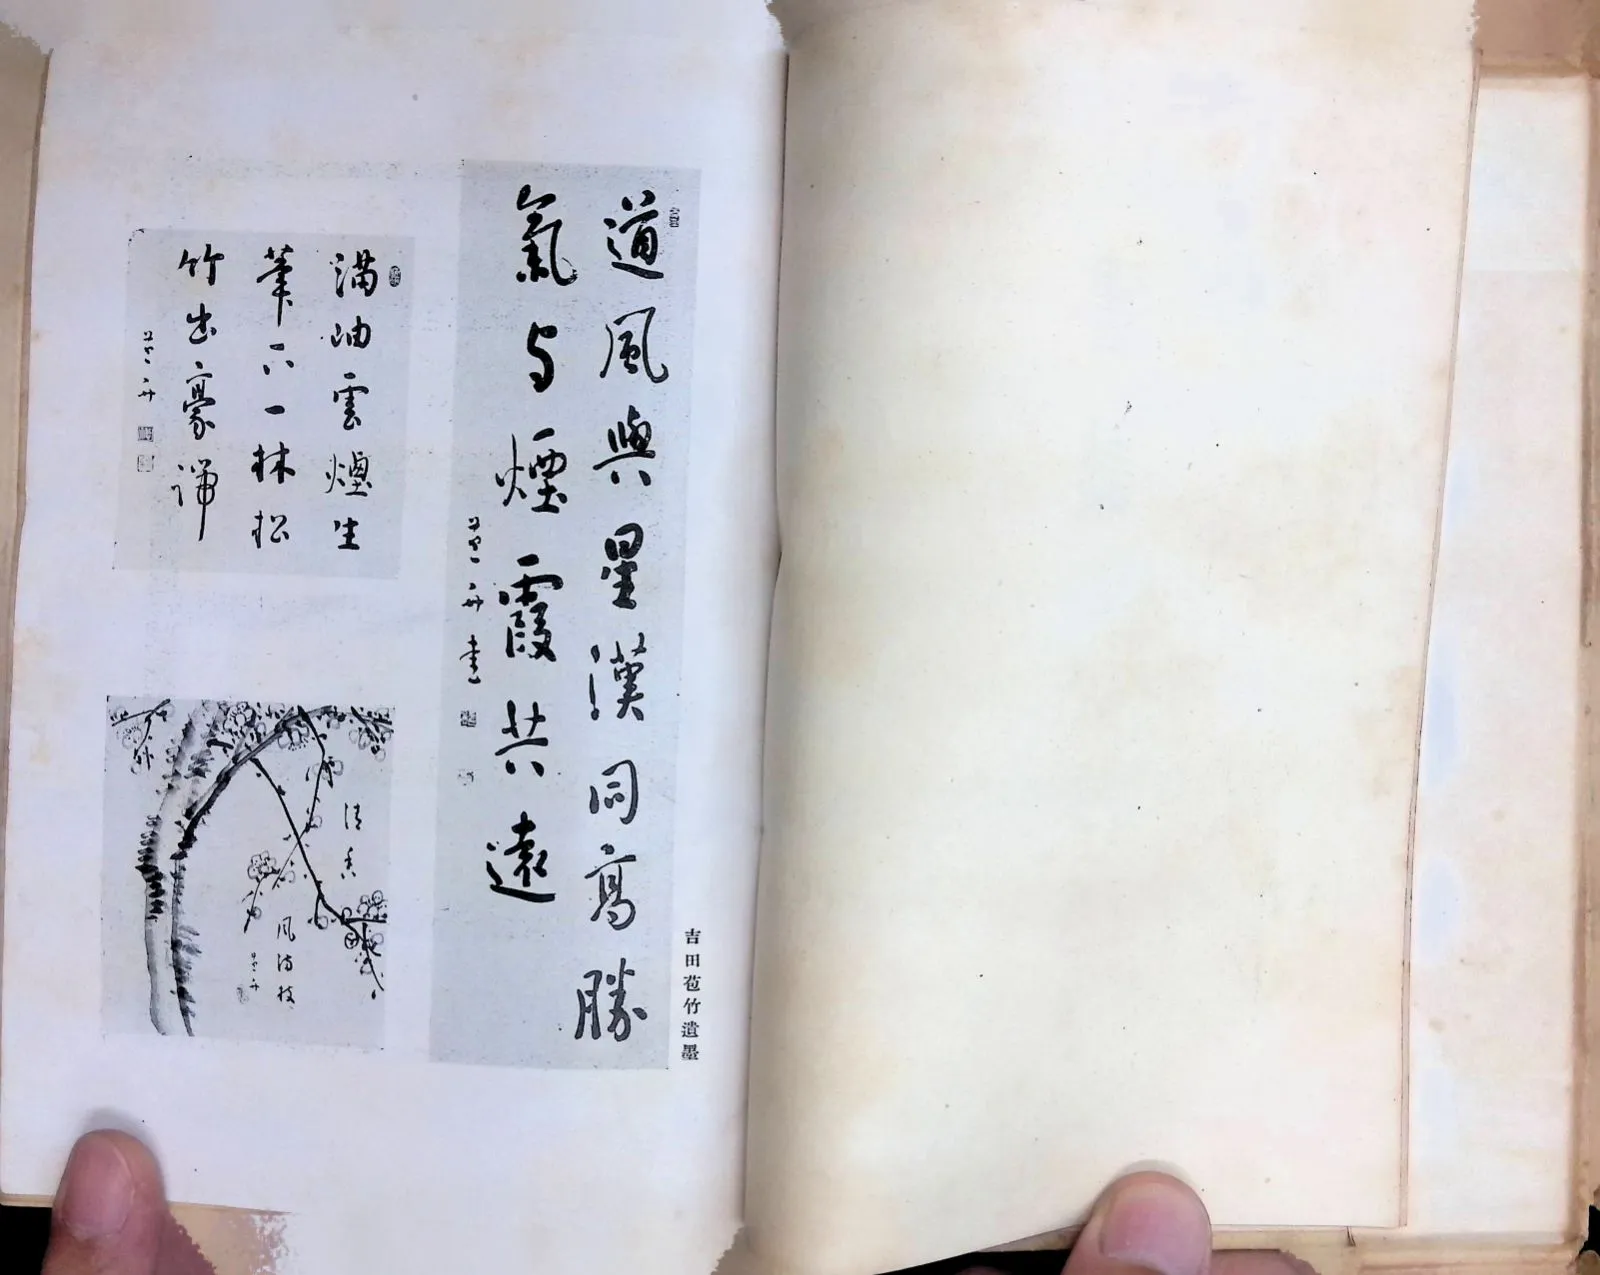 吉田苞竹遺墨
道風與星漢同高勝
氣与煙霞共遠
滿岫雲煙生
筆下一林松
竹出豪端
清香
風滿枝